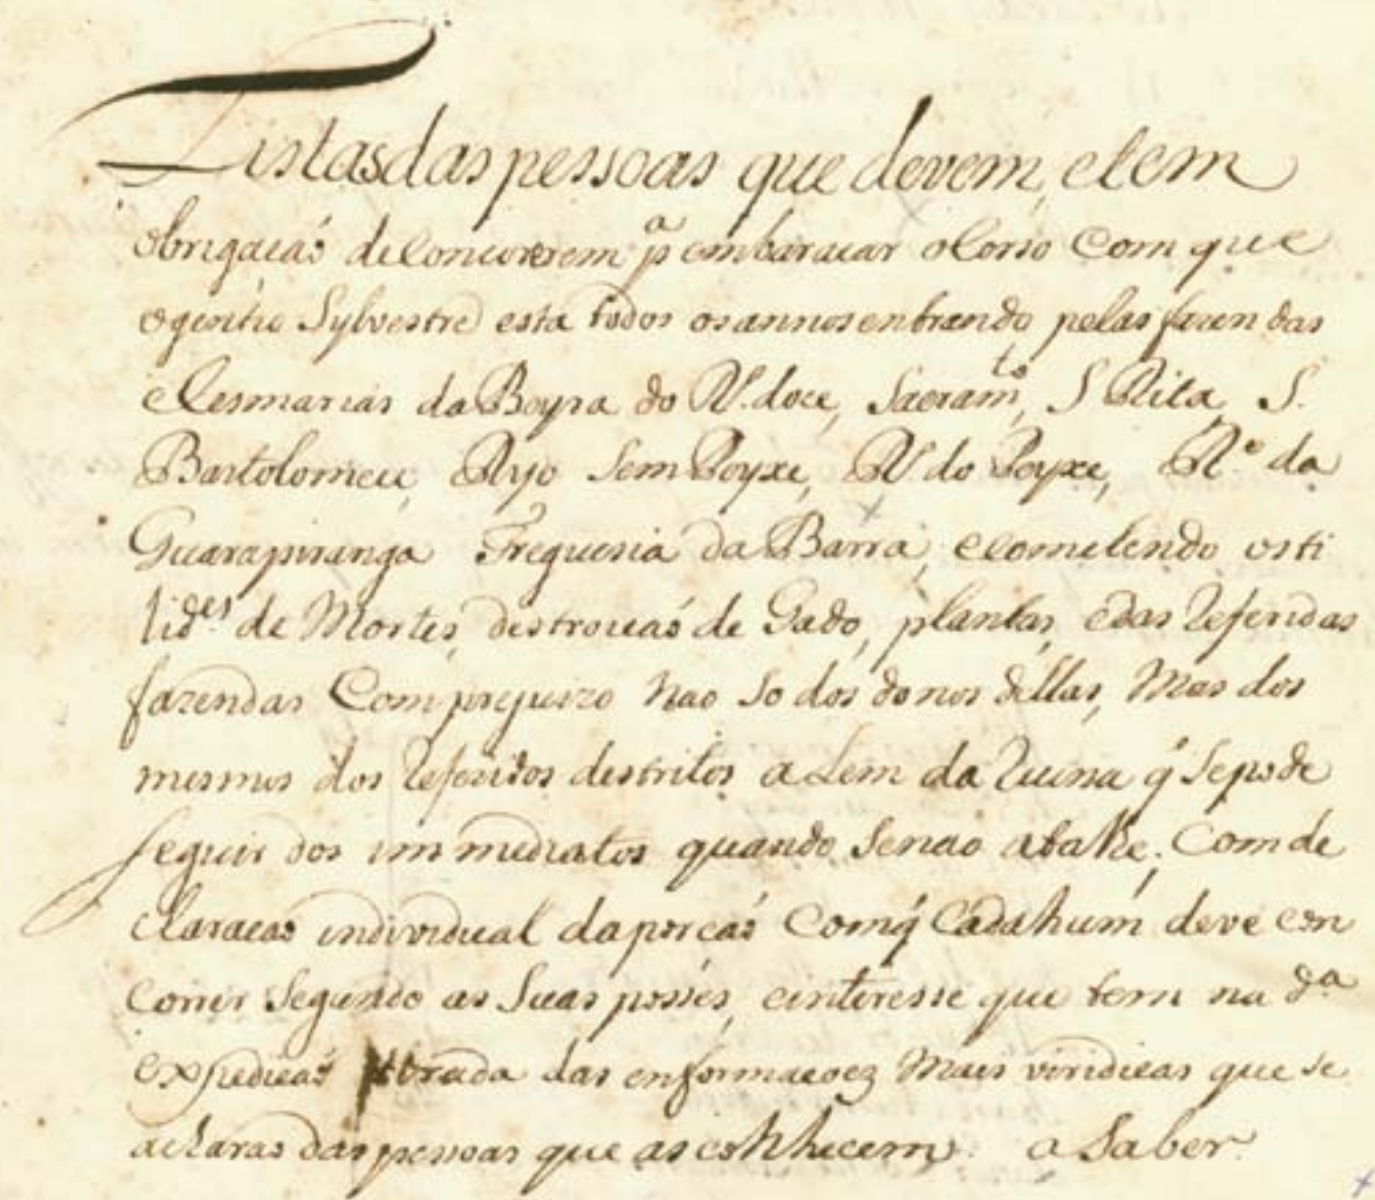 Listas das pessoas que devem, e tem
obrigacaó de Concorerem p.ª embaracar o Corso Com que
o gentio Sylvestre está todos os annos entrando pelas fazendas
e Cesmarias da Beyra do R.º doce, Sacram.to, S Rita, S.
Bartolomeu, Ryo Sem Peyxe, R.º do Peyxe, R.º da
Guarapiranga Freguesia da Barra, e cometendo osti
lid.es de Mortes, destroicaó de Gado, plantas, e das Referidas
fazendas Com prejuizo nao So dos donos dellas, Mas dos
mesmos dos Referidos destritos a Lem da Ruina q̃ Se pode
Seguir dos immediatos quando Se nao atalhe. Com de
claracaó individual da porcaó Com q̃ Cada hum deve con
correr Segundo as Suas posses, e interesse que tem na d.ª
expedicaó tirada das enformacoez Mais viridicas que se
acharaó das pessoas que as conhhecem. a Saber.